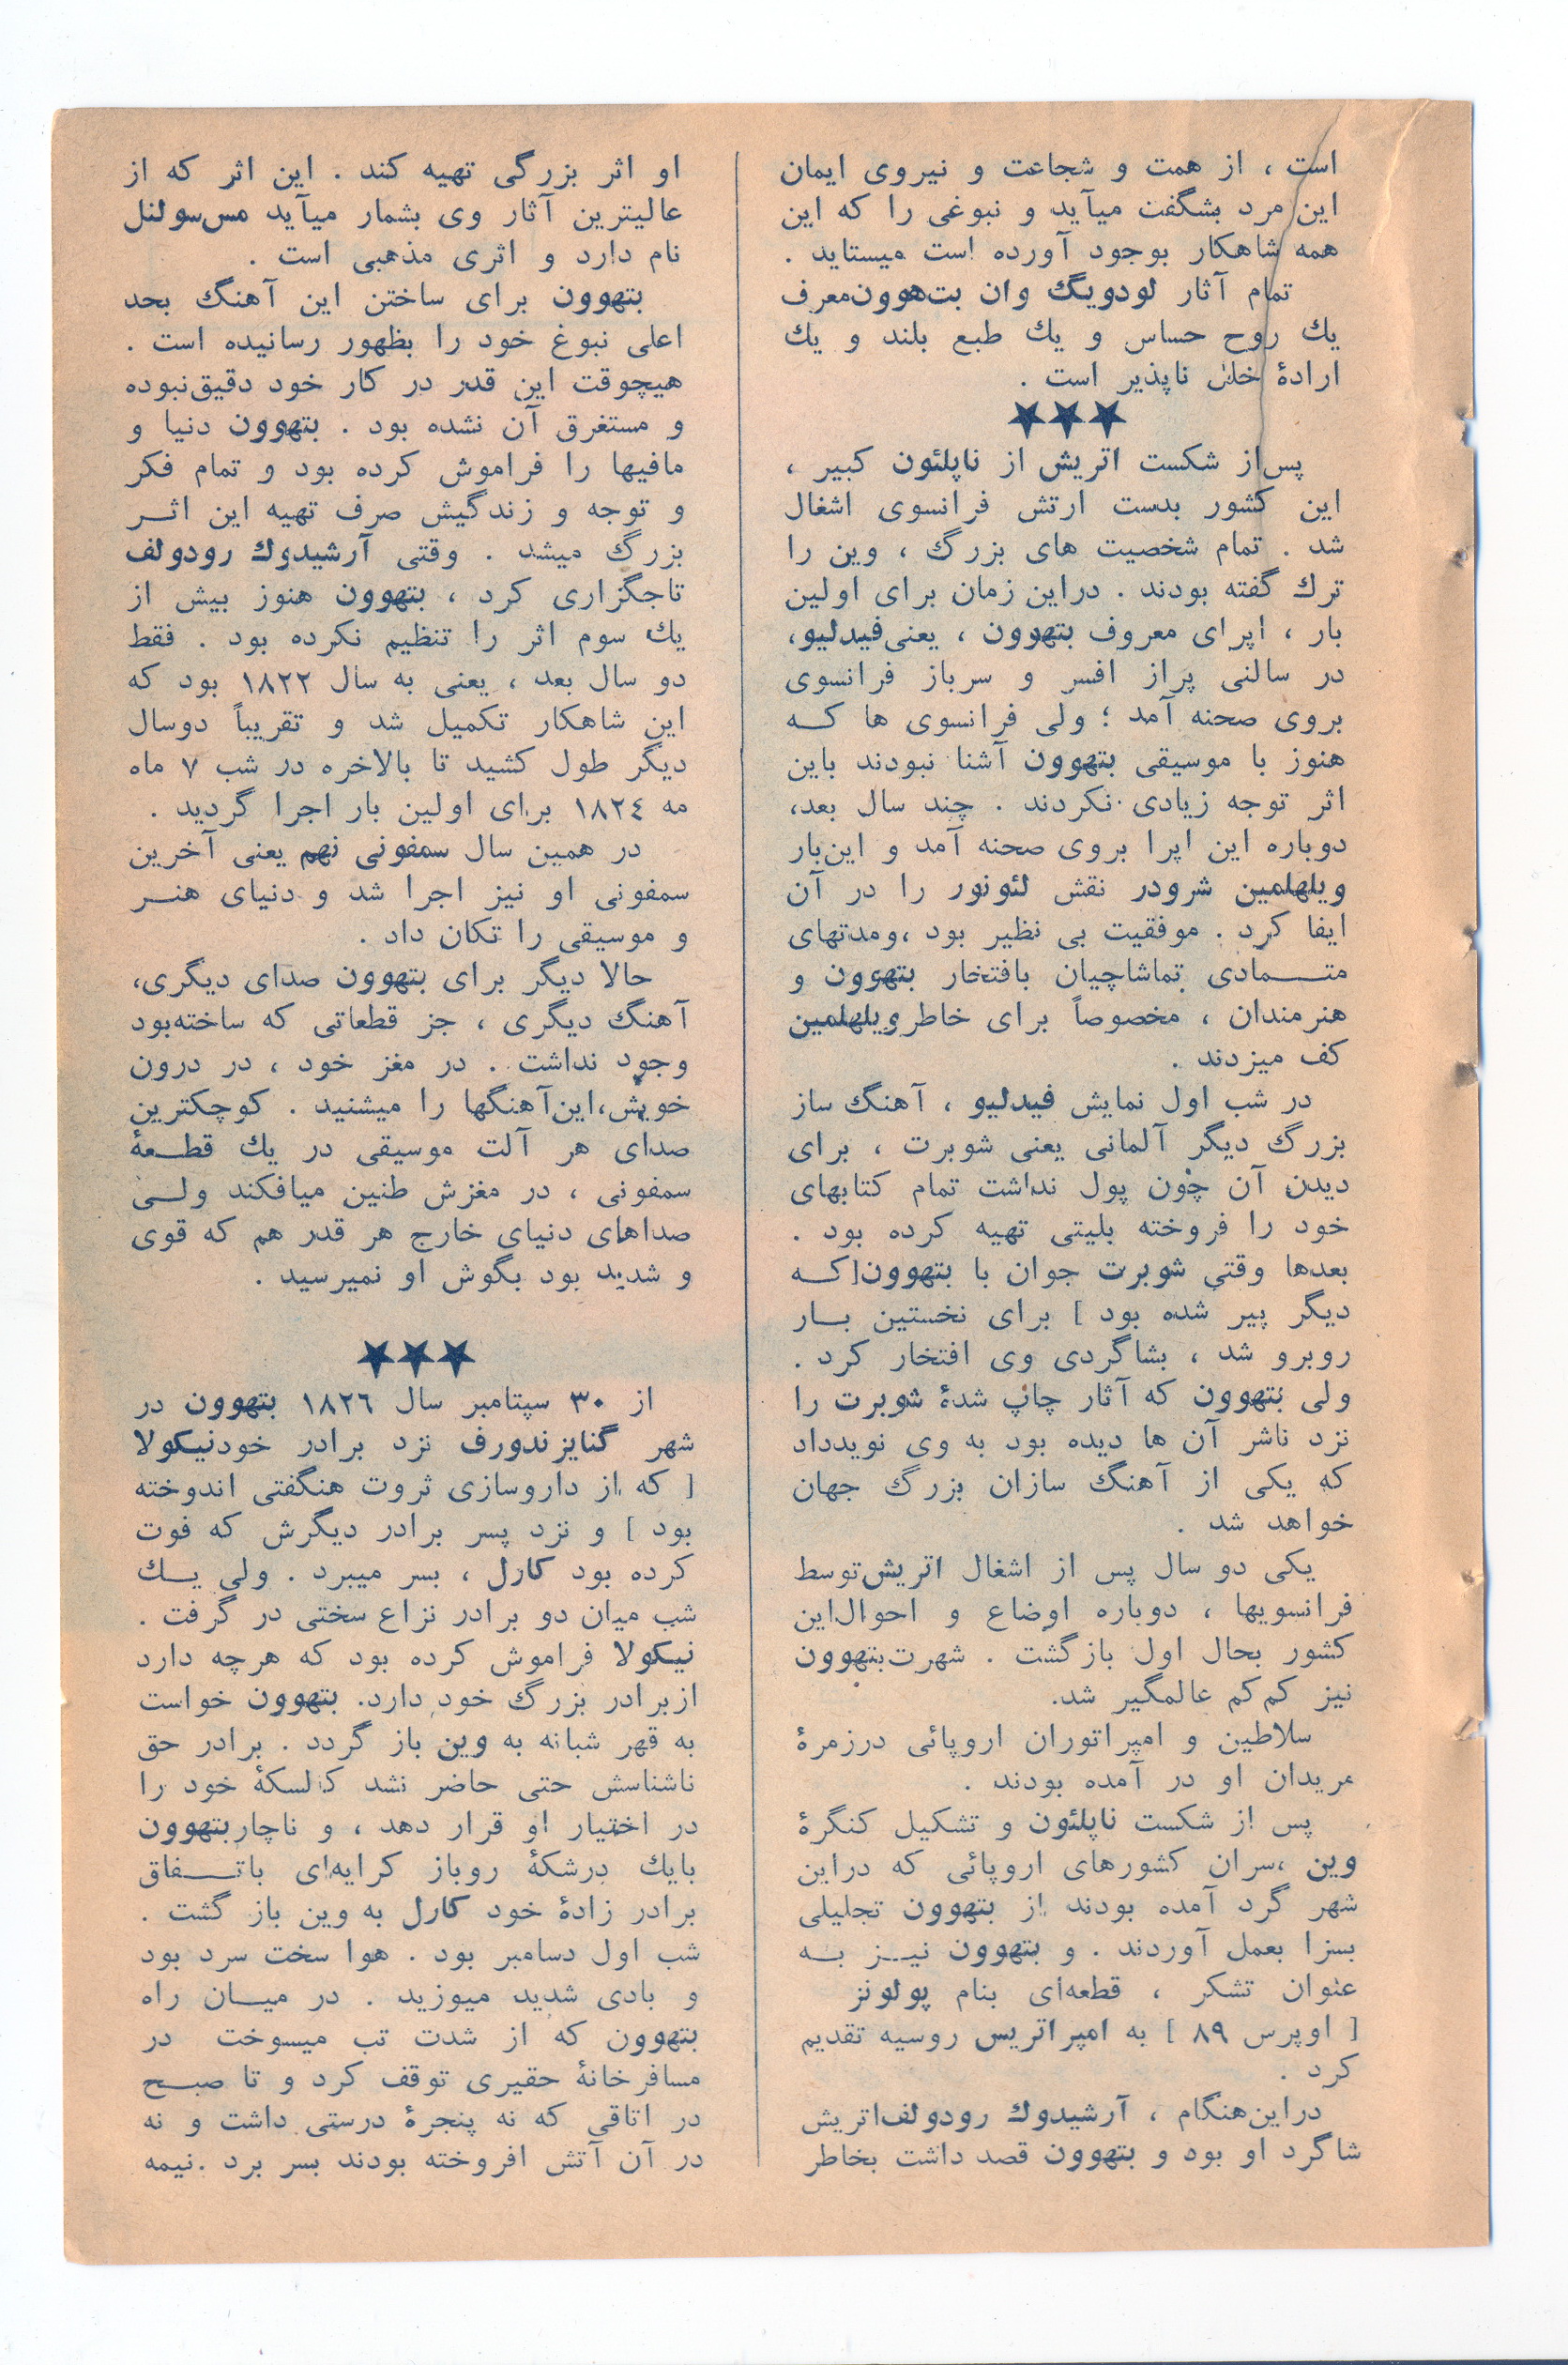 است ، از همت و شجاعت و نیروی ایمان
این مرد بشگفت میآید و نبوغی را که این
همه شاهکار بوجود آورده است میستاید .
تمام آثار لودویگ وان بت‌هوون معرف
یك روح حساس و یك طبع بلند و یك
ارادهٔ خلل ناپذیر است .
★★★
پس از شکست اتریش از ناپلئون کبیر ،
این کشور بدست ارتش فرانسوی اشغال
شد . تمام شخصیت های بزرگ ، وین را
ترك گفته بودند . دراین زمان برای اولین
بار ، اپرای معروف بتهوون ، یعنی فیدلیو،
در سالنی پراز افسر و سرباز فرانسوی
بروی صحنه آمد ؛ ولی فرانسوی ها کــه
هنوز با موسیقی بتهوون آشنا نبودند باین
اثر توجه زیادی نکردند . چند سال بعد،
دوباره این اپرا بروی صحنه آمد و این‌بار
ویلهلمین شرودر نقش لئونور را در آن
ایفا کرد . موفقیت بی نظیر بود ،ومدتهای
متــمادی تماشاچیان بافتخار بتهوون و
هنرمندان ، مخصوصاً برای خاطر ویلهلمین
کف میزدند .
در شب اول نمایش فیدلیو ، آهنگ ساز
بزرگ دیگر آلمانی یعنی شوبرت ، برای
دیدن آن چون پول نداشت تمام کتابهای
خود را فروخته بلیتی تهیه کرده بود .
بعدها وقتی شوبرت جوان با بتهوون [کــه
دیگر پیر شده بود ] برای نخستین بــار
روبرو شد ، بشاگردی وی افتخار کرد .
ولی بتهوون که آثار چاپ شدهٔ شوبرت را
نزد ناشر آن ها دیده بود به وی نویدداد
که یکی از آهنگ سازان بزرگ جهان
خواهد شد .
یکی دو سال پس از اشغال اتریش توسط
فرانسویها ، دوباره اوضاع و احوال این
کشور بحال اول بازگشت . شهرت بتهوون
نیز کم‌کم عالمگیر شد.
سلاطین و امپراتوران اروپائی درزمرهٔ
مریدان او در آمده بودند .
پس از شکست ناپلئون و تشکیل کنگرهٔ
وین ،سران کشورهای اروپائی که دراین
شهر گرد آمده بودند از بتهوون تجلیلی
بسزا بعمل آوردند . و بتهوون نیــز بــه
عنوان تشکر ، قطعه‌ای بنام پولونز
[ اوپرس ۸۹ ] به امپراتریس روسیه تقدیم
کرد .
دراین‌هنگام ، آرشیدوك رودولف اتریش
شاگرد او بود و بتهوون قصد داشت بخاطر
او اثر بزرگی تهیه کند . این اثر که از
عالیترین آثار وی بشمار میآید مس‌سولنل
نام دارد و اثری مذهبی است .
بتهوون برای ساختن این آهنگ بحد
اعلی نبوغ خود را بظهور رسانیده است .
هیچوقت این قدر در کار خود دقیق‌نبوده
و مستغرق آن نشده بود . بتهوون دنیا و
مافیها را فراموش کرده بود و تمام فکر
و توجه و زندگیش صرف تهیه این اثــر
بزرگ میشد . وقتی آرشیدوك رودولف
تاجگزاری کرد ، بتهوون هنوز بیش از
یك سوم اثر را تنظیم نکرده بود . فقط
دو سال بعد ، یعنی به سال ۱۸۲۲ بود که
این شاهکار تکمیل شد و تقریباً دوسال
دیگر طول کشید تا بالاخره در شب ۷ ماه
مه ۱۸۲٤ برای اولین بار اجرا گردید .
در همین سال سمفونی نهم یعنی آخرین
سمفونی او نیز اجرا شد و دنیای هنــر
و موسیقی را تکان داد .
حالا دیگر برای بتهوون صدای دیگری،
آهنگ دیگری ، جز قطعاتی که ساخته‌بود
وجود نداشت . در مغز خود ، در درون
خویش،این‌آهنگها را میشنید . کوچکترین
صدای هر آلت موسیقی در یك قطــعهٔ
سمفونی ، در مغزش طنین میافکند ولــی
صداهای دنیای خارج هر قدر هم که قوی
و شدید بود بگوش او نمیرسید .
★★★
از ۳۰ سپتامبر سال ۱۸۲٦ بتهوون در
شهر گنایزندورف نزد برادر خود نیکولا
[ که از داروسازی ثروت هنگفتی اندوخته
بود ] و نزد پسر برادر دیگرش که فوت
کرده بود کارل ، بسر میبرد . ولی یــك
شب میان دو برادر نزاع سختی در گرفت .
نیکولا فراموش کرده بود که هرچه دارد
ازبرادر بزرگ خود دارد. بتهوون خواست
به قهر شبانه به وین باز گردد . برادر حق
ناشناسش حتی حاضر نشد کالسکهٔ خود را
در اختیار او قرار دهد ، و ناچار بتهوون
بایك درشکهٔ روباز کرایه‌ای باتــفاق
برادر زادهٔ خود کارل به وین باز گشت .
شب اول دسامبر بود . هوا سخت سرد بود
و بادی شدید میوزید . در میــان راه
بتهوون که از شدت تب میسوخت در
مسافرخانهٔ حقیری توقف کرد و تا صبــح
در اتاقی که نه پنجرهٔ درستی داشت و نه
در آن آتش افروخته بودند بسر برد .نیمه